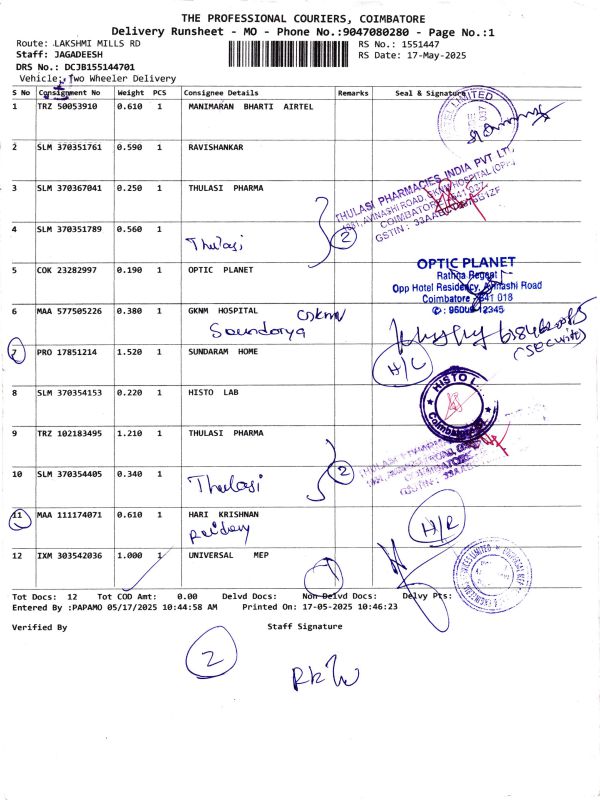 THE PROFESSIONAL COURIERS, COIMBATORE
Delivery Runsheet - MO - Phone No.:9047080280 - Page No.:1
Route: LAKSHMI MILLS RD
RS No.: 1551447
Staff: JAGADEESH
RS Date: 17-May-2025
DRS No.: DCJB155144701
Vehicle: Two Wheeler Delivery
S No Consignment No Weight PCS Consignee Details Remarks Seal & Signature
1 TRZ 50053910 0.610 1 MANIMARAN BHARTI AIRTEL
LIMITED
2 SLM 370351761 0.590 1 RAVISHANKAR
3 SLM 370367041 0.250 1 THULASI PHARMA
THULASI PHARMACIES INDIA PVT LTD
COIMBATORE
GSTIN :
4 SLM 370351789 0.560 1
Thulasi
2
5 COK 23282997 0.190 1 OPTIC PLANET
OPTIC PLANET
Rathna Regent
Opp Hotel Residency, Avinashi Road
Coimbatore - 641 018
6 MAA 577505226 0.380 1 GKNM HOSPITAL
Soundarya
(Security)
7 PRO 17851214 1.520 1 SUNDARAM HOME
H/L
8 SLM 370354153 0.220 1 HISTO LAB
HISTO L
Coimbatore
9 TRZ 102183495 1.210 1 THULASI PHARMA
10 SLM 370354405 0.340 1
Thulasi
2
11 MAA 111174071 0.610 1 HARI KRISHNAN
H/R
12 IXM 303542036 1.000 1 UNIVERSAL MEP
Tot Docs: 12 Tot COD Amt: 0.00 Delvd Docs: Non Delvd Docs: Delvy Pts:
Entered By :PAPAMO 05/17/2025 10:44:58 AM Printed On: 17-05-2025 10:46:23
Verified By Staff Signature
2